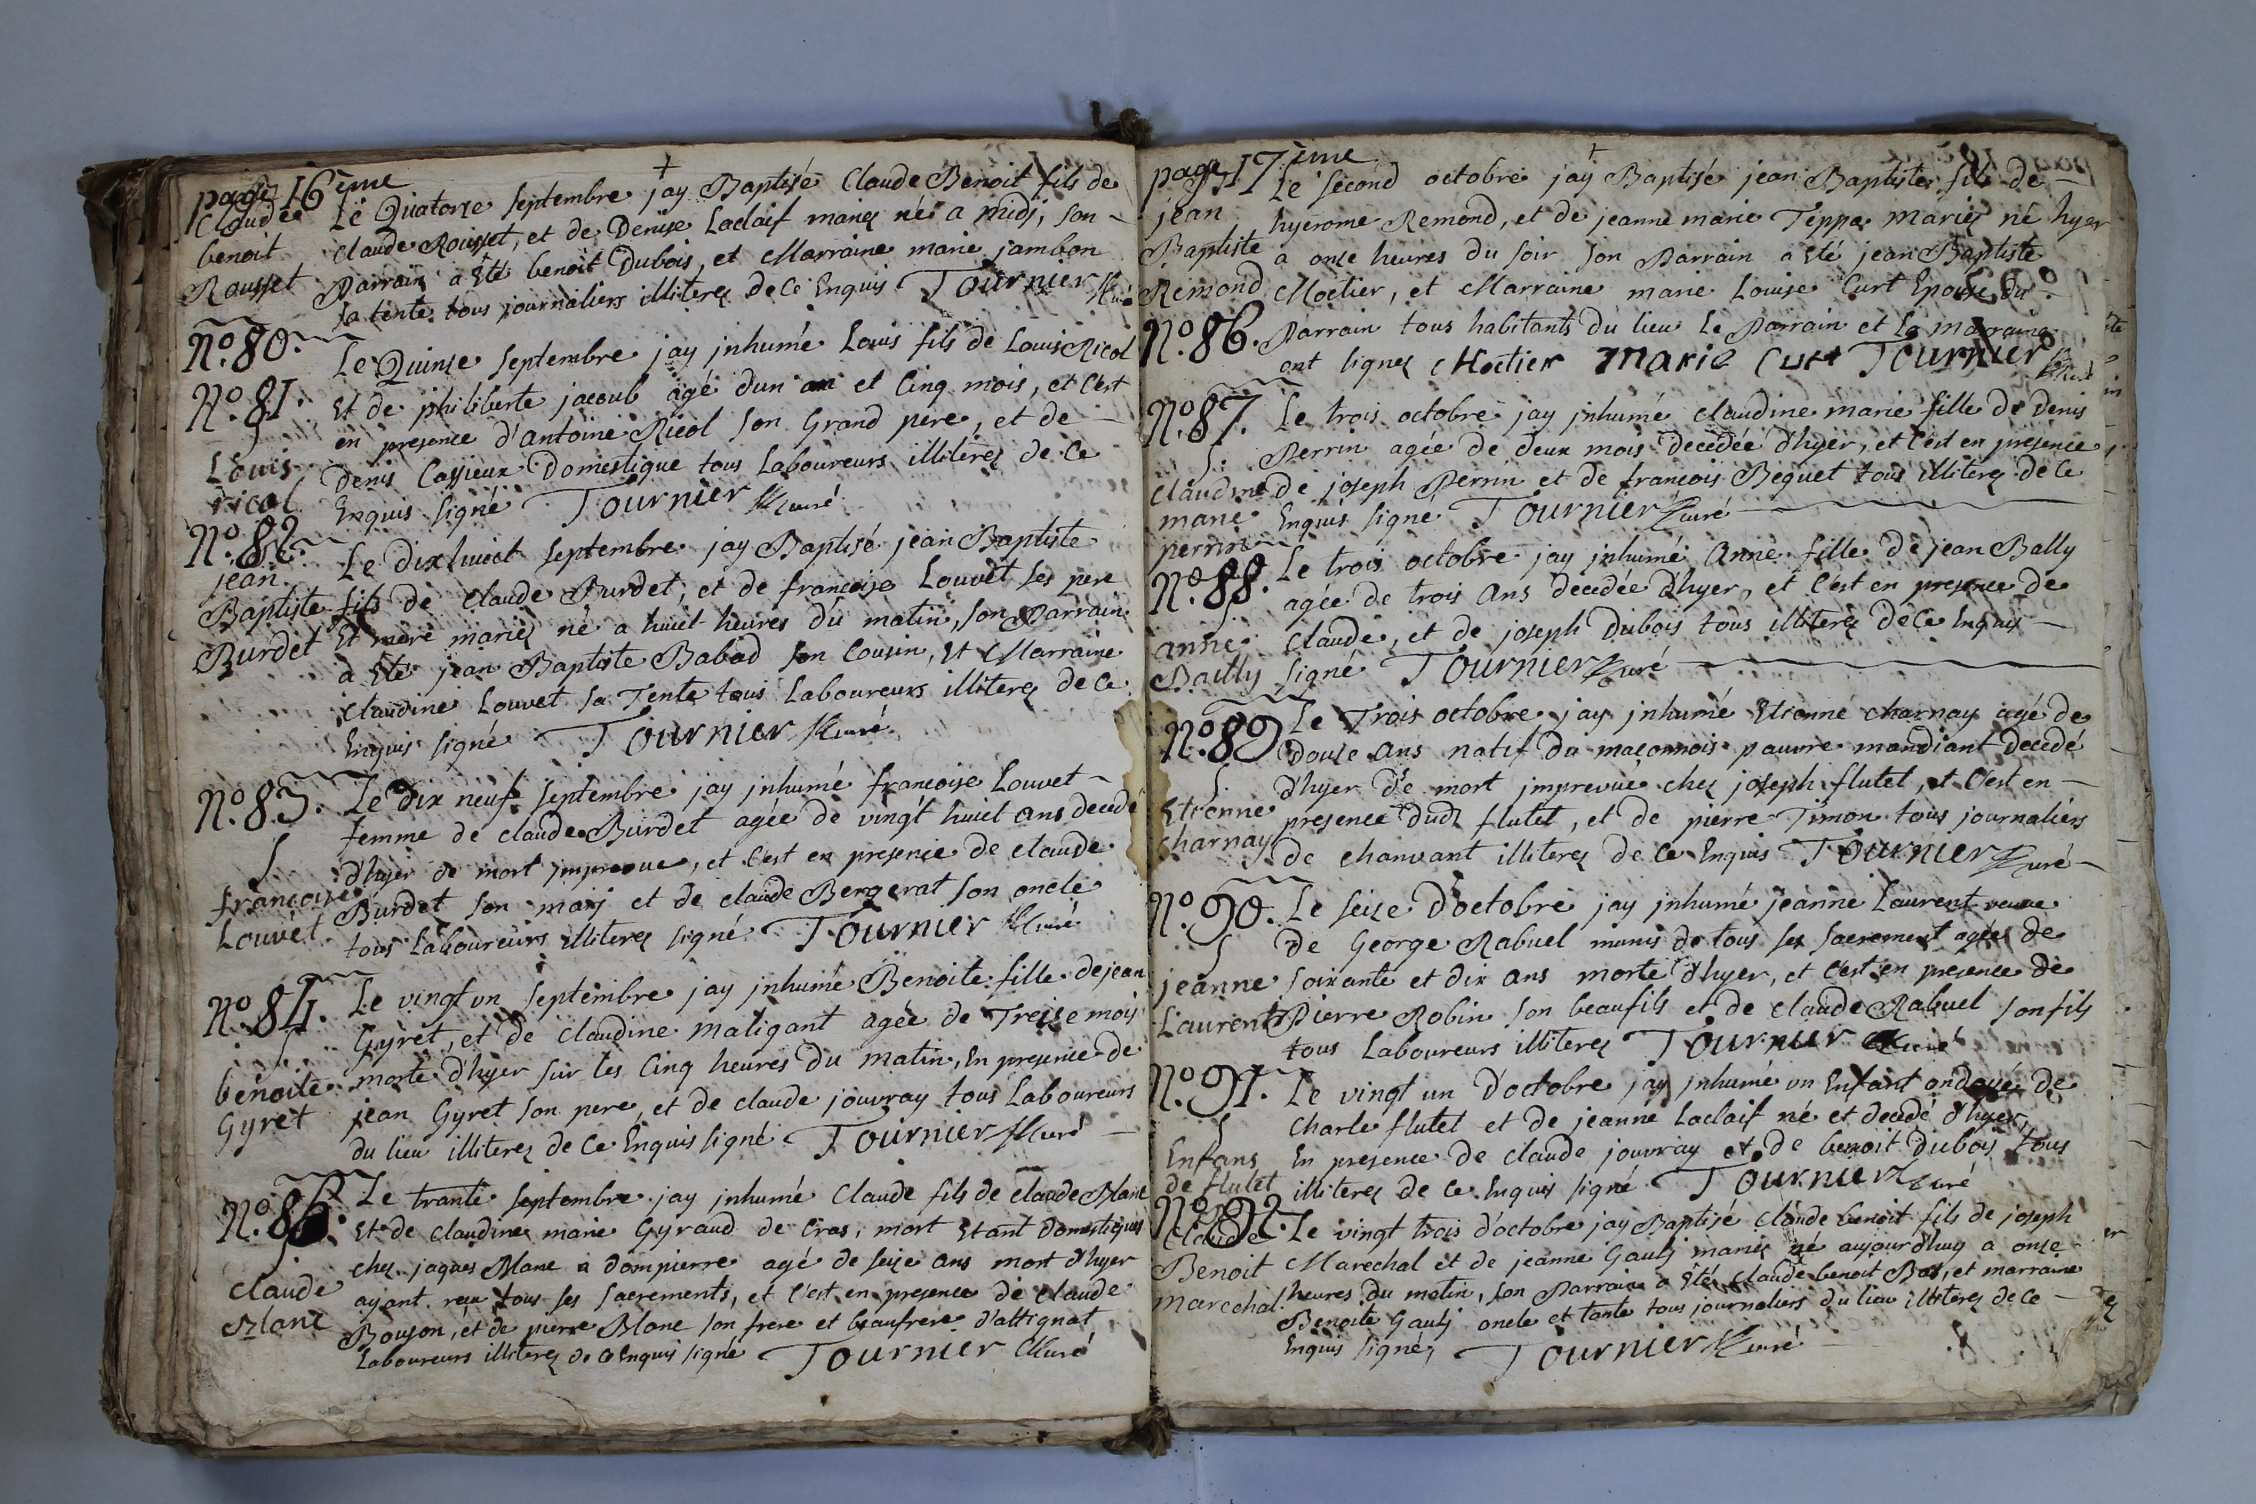 page 16ème
Claude Le Quatorze septembre jay Baptisé Claude Benoit fils de
benoit Claude Rousset, et de Denise Laclaif mariez né a midj, son
Rousset Parrain a été benoit Dubois, et Marraine marie jambon
sa tente tous journaliers illiterez de ce Enquis Tournier Curé
No. 80.
No. 81. Le Quinze septembre jay jnhumé Louis fils de Louis Nicol
Et de philiberte jacoub agé dun an et Cinq mois, et C'est
en presence d'antoine Nicol son Grand pere, et de
Louis Denis Cassieux Domestique tous Laboureurs illiterez de Ce
Nicol Enquis signé Tournier Curé
No. 82. Le dix huict septembre jay Baptisé jean Baptiste
jean
Baptiste fils de Claude Burdet, et de françoise Louvet ses pere
Burdet Et mere mariez né a huict heures du matin, son Parrain
a Eté jean Baptiste Babad son Cousin, Et Marraine
Claudine Louvet sa Tente tous Laboureurs illiterez de Ce
Enquis signé Tournier Curé
No. 83. Le dix neuf septembre jay jnhumé françoise Louvet
femme de claude Burdet agée de vingt huict ans decedé
d'hyer de mort jmprevue, et C'est en presence de claude
françoise Burdet son marj et de claude Bergerat son oncle
Louvet tous Laboureurs illiterez signé Tournier Curé
No. 84. Le vingt un septembre jay jnhumé Benoite fille de jean
Gyret, et de Claudine maligant agée de Treize mois
benoite morte d'hyer sur les Cinq heures du matin, En presence de
Gyret jean Gyret son pere, et de claude jouvray tous Laboureurs
du lieu illiterez de Ce Enquis signé Tournier Curé
No. 85. Le trante septembre jay jnhumé Claude fils de claude Blanc
Et de claudine marie Gyraud de Cras, mort Etant domestiques
chez jaques Blanc a dompierre agé de seize ans mort d'hyer
claude ayant reçu tous ses sacrements, et C'est en presence de claude
Blanc Boujon, et de pierre Blanc son frere et beaufrere d'attignat
Laboureurs illiterez de Ce Enquis signé Tournier Curé
page 17ème
Le second octobre jay Baptisé jean Baptiste fils de
jean hyerome Remond, et de jeanne marie Teppe mariez né hyer
Baptiste a onze heures du soir son Parrain a Eté jean Baptiste
Remond Moetier, et Marraine marie Louise Curt Epouse du
No. 86. Parrain tous habitants du lieu Le Parrain et la marraine
ont signez Moetier Marie Curt Tournier Curé
No. 87. Le trois octobre jay jnhumé Claudine marie fille de Denis
Perrin agée de deux mois decedée d'hyer, et C'est en presence
Claudine de joseph Perrin et de francois Bequet tous illiterez de Ce
marie Enquis signé Tournier Curé
perrin
No. 88. Le trois octobre jay jnhumé Anne fille de jean Bally
agée de trois ans decedée d'hyer, et C'est en presence de
anne Claude, et de joseph Dubois tous illiterez de Ce Enquis
Bailly signé Tournier Curé
No. 89. Le Trois octobre jay jnhumé Etienne charnay agé de
Douze ans natif du maconnois pauvre mandiant decedé
d'hyer de mort jmprevue chez joseph flutet, et C'est en
Etienne presence dudt flutet, et de pierre Timon tous journaliers
Charnay de chanvant illiterez de Ce Enquis Tournier Curé
No. 90. Le seize d'octobre jay jnhumé jeanne Laurent veuve
de George Rabuel munis de tous ses sacrement agée de
jeanne soixante et dix ans morte d'hyer, et C'est en presence de
Laurent Pierre Robin son beaufils et de claude Rabuel son fils
tous Laboureurs illiterez Tournier Curé
No. 91. Le vingt un d'octobre jay jnhumé un Enfant ondoyé de
Charle flutet et de jeanne Laclaif né et decedé d'hyer,
Enfans En presence de claude jouvray et de benoit dubois tous
de flutet illiterez de Ce Enquis signé Tournier Curé
No. 92. Le vingt trois d'octobre jay Baptisé Claude benoit fils de joseph
Claude
Benoit Marechal et de jeanne Gaulj mariez né aujourdhuy a onze
Marechal heures du matin, son Parrain a Eté Claude benoit Bos, et marraine
Benoite Gaulj oncle et tante tous journaliers du lieu illiterez de Ce
Enquis signé, Tournier Curé